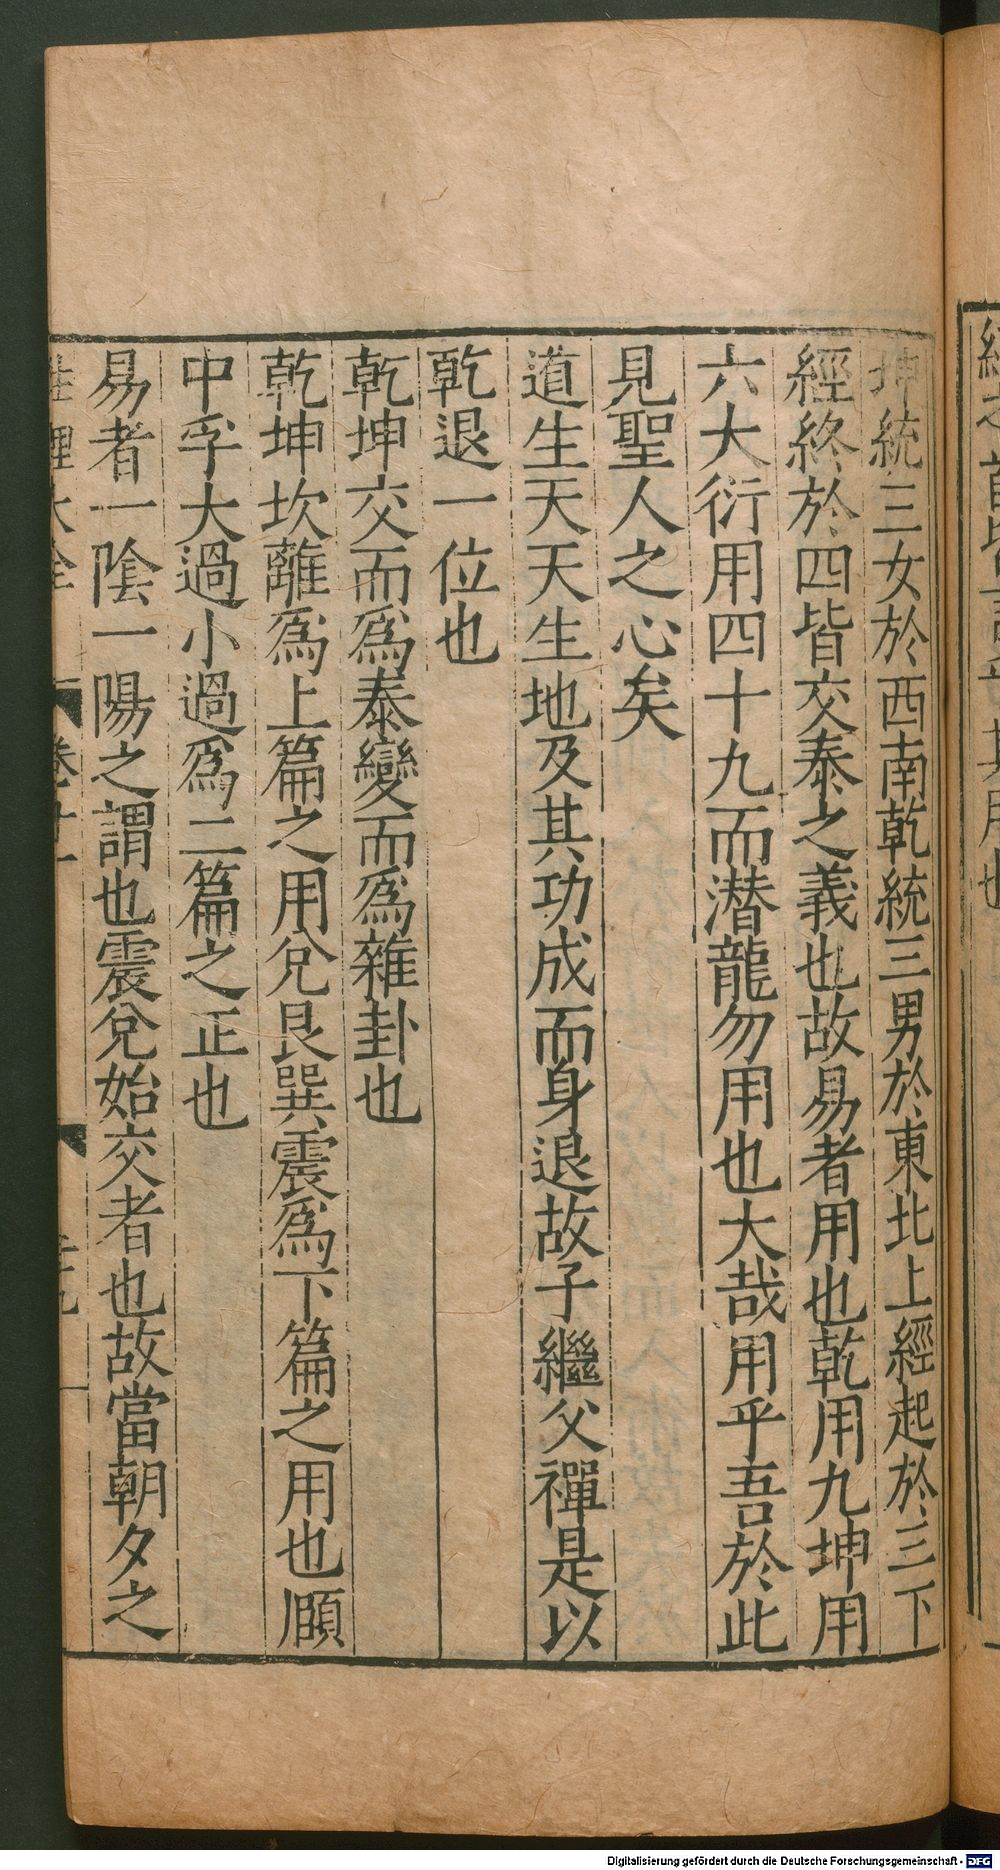 坤統三女於西南乾統三男於東北上經起於三下
經終於四皆交泰之義也故易者用也乾用九坤用
六大衍用四十九而潛龍勿用也大哉用乎吾於此
見聖人之心矣
道生天天生地及其功成而身退故子繼父禪是以
乾退一位也
乾坤交而爲泰變而爲雜卦也
乾坤坎離爲上篇之用兌艮巽震爲下篇之用也頤
中孚大過小過爲二篇之正也
易者一陰一陽之謂也震兌始交者也故當朝夕之
性理大全 卷十一
Digitalisierung gefördert durch die Deutsche Forschungsgemeinschaft - DFG